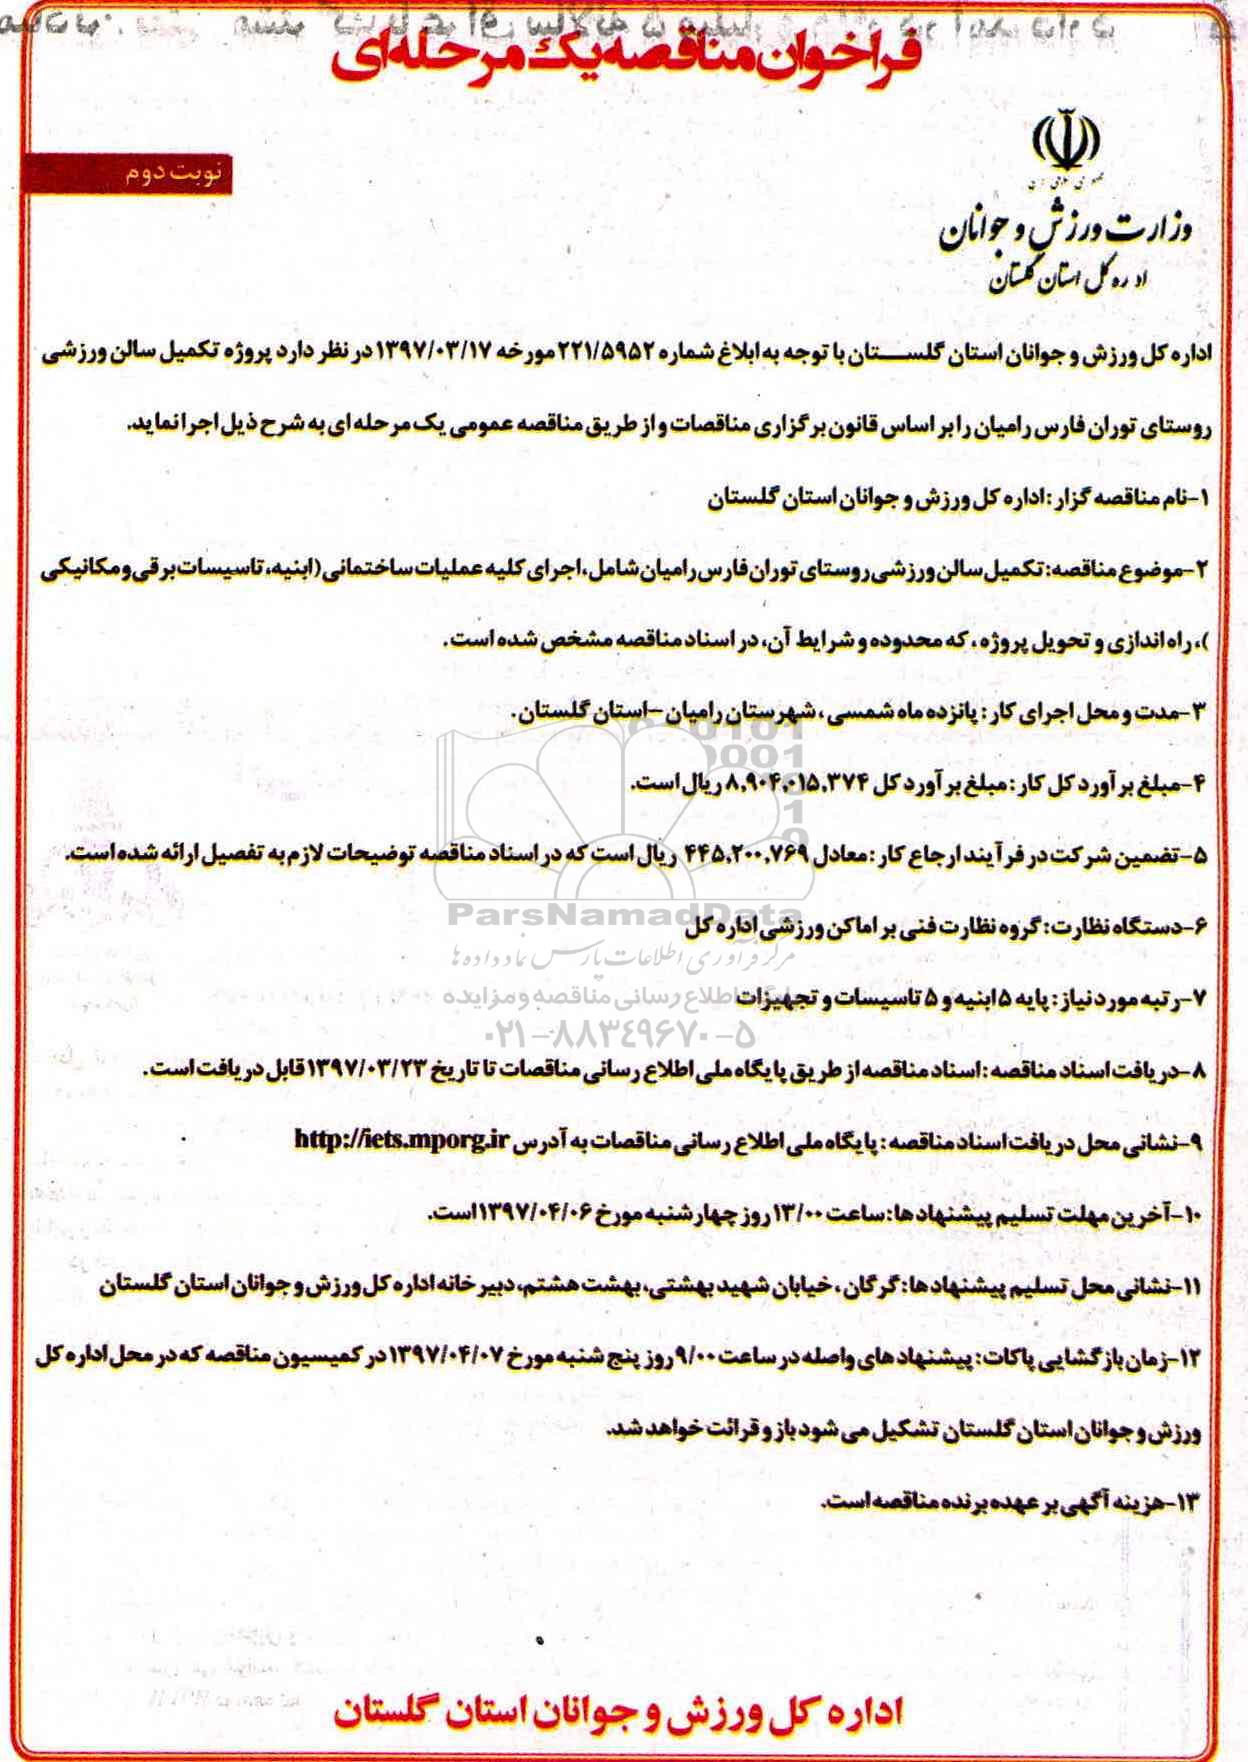 فراخوان مناقصه یک مرحله‌ای
نوبت دوم
وزارت ورزش و جوانان
اداره کل استان گلستان
اداره کل ورزش و جوانان استان گلستان با توجه به ابلاغ شماره ۲۲۱/۵۹۵۲ مورخه ۱۳۹۷/۰۳/۱۷ در نظر دارد پروژه تکمیل سالن ورزشی
روستای توران فارس رامیان را بر اساس قانون برگزاری مناقصات و از طریق مناقصه عمومی یک مرحله ای به شرح ذیل اجرا نماید.
۱-نام مناقصه گزار: اداره کل ورزش و جوانان استان گلستان
۲-موضوع مناقصه: تکمیل سالن ورزشی روستای توران فارس رامیان شامل، اجرای کلیه عملیات ساختمانی (ابنیه، تاسیسات برقی و مکانیکی
)، راه اندازی و تحویل پروژه، که محدوده و شرایط آن، در اسناد مناقصه مشخص شده است.
۳-مدت و محل اجرای کار: پانزده ماه شمسی، شهرستان رامیان -استان گلستان.
۴-مبلغ برآورد کل کار: مبلغ برآورد کل ۸,۹۰۴,۰۱۵,۳۷۴ ریال است.
۵-تضمین شرکت در فرآیند ارجاع کار: معادل ۴۴۵,۲۰۰,۷۶۹ ریال است که در اسناد مناقصه توضیحات لازم به تفصیل ارائه شده است.
ParsNamadData
۶-دستگاه نظارت: گروه نظارت فنی بر اماکن ورزشی اداره کل
مرکز فرآوری اطلاعات پارس نماد داده ها
۷-رتبه مورد نیاز: پایه ۵ ابنیه و ۵ تاسیسات و تجهیزات
اطلاع رسانی مناقصه و مزایده
۰۲۱-۸۸۳۴۹۶۷۰-۵
۸-دریافت اسناد مناقصه: اسناد مناقصه از طریق پایگاه ملی اطلاع رسانی مناقصات تا تاریخ ۱۳۹۷/۰۳/۲۳ قابل دریافت است.
۹-نشانی محل دریافت اسناد مناقصه: پایگاه ملی اطلاع رسانی مناقصات به آدرس http://iets.mporg.ir
۱۰-آخرین مهلت تسلیم پیشنهادها: ساعت ۱۳/۰۰ روز چهارشنبه مورخ ۱۳۹۷/۰۴/۰۶ است.
۱۱-نشانی محل تسلیم پیشنهادها: گرگان، خیابان شهید بهشتی، بهشت هشتم، دبیرخانه اداره کل ورزش و جوانان استان گلستان
۱۲-زمان بازگشایی پاکات: پیشنهادهای واصله در ساعت ۹/۰۰ روز پنج شنبه مورخ ۱۳۹۷/۰۴/۰۷ در کمیسیون مناقصه که در محل اداره کل
ورزش و جوانان استان گلستان تشکیل می شود باز و قرائت خواهد شد.
۱۳-هزینه آگهی بر عهده برنده مناقصه است.
اداره کل ورزش و جوانان استان گلستان